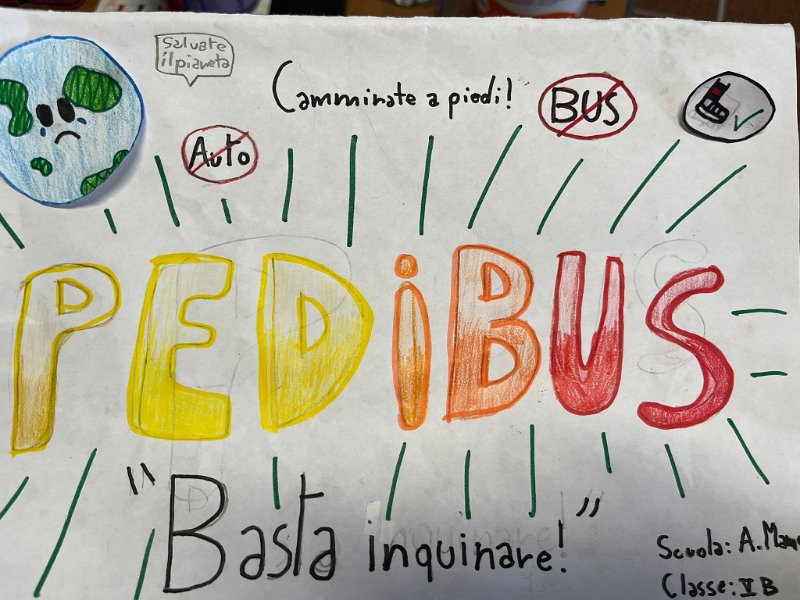 Salvate
il pianeta
Camminate a piedi!
BUS
Auto
PEDiBUS
"Basta inquinare!"
Scuola: A.
Classe: V B